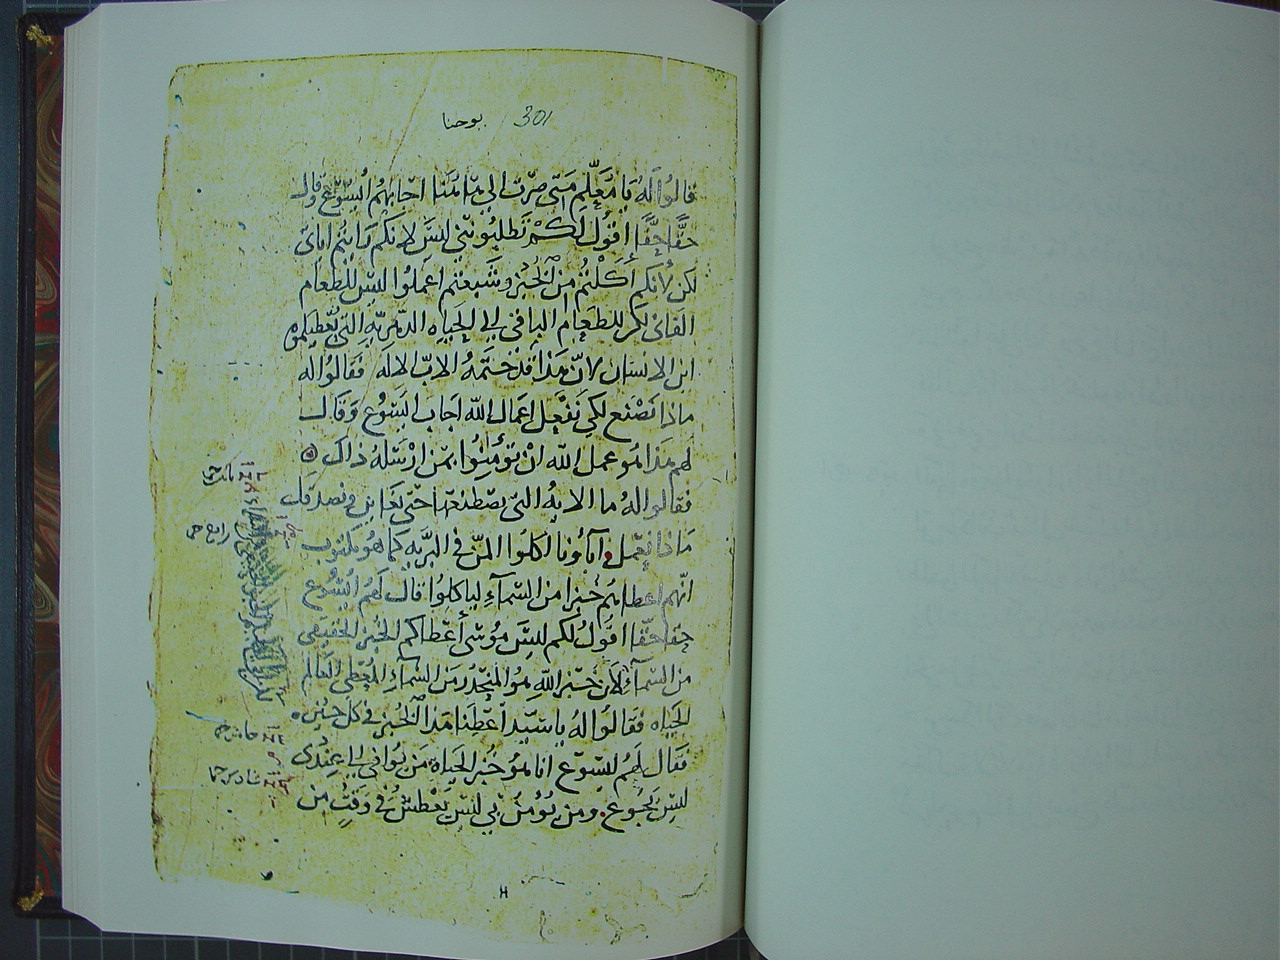 يوحنا 301
قالوا له يا معلّم متى صرت الى هاهنا اجابهم ايسوع وقال
حقًّا حقًّا اقول لكم تطلبونني ليس لانكم رايتم اياتي
لكن لانكم اكلتم من الخبز وشبعتم اعملوا ليس للطعام
الفاني لكن للطعام الباقي الى الحياه الدهريه التي يُعطيكموه
ابن الانسان لانّ هذا قد ختمهُ الابّ الاله فقالوا له
ماذا نصنع لكي نفعل اعمال الله اجاب ايسوع وقال
لهم هذا هو عمل الله ان تؤمنوا بمن ارسله ذاك
فقالوا له ما الايه التي تصطنعها حتى نعاين ونصدقك
ماذا تعمل اباؤنا اكلوا المنّ في البريه كما هو مكتوب
انّهم اعطاهم خبزا من السمآء لياكلوا قال لهم ايسوع
حقا حقّا اقول لكم ليس موسى أعطاكم الخبز الحقيقي
من السمآء لان خبز الله هو المنحدر من السمآء المُعطي العالم
الحياه فقالوا له يا سيّد أعطنا هذا الخبز في كل حين
فقال لهم ايسوع انا هو خبز الحياه من يوافي الى عندي
ليس يجوع ومن يؤمن بي ليس يعطش في وقتٍ من
رابع
خامس
سادس